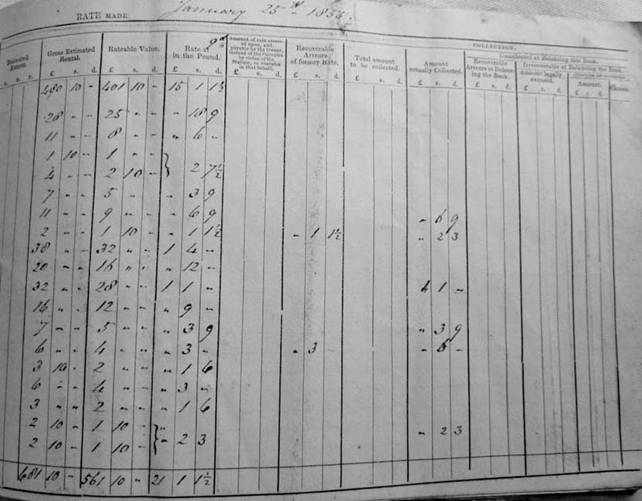 RATE MADE January 25th 1855.
COLLECTION.
Gross Estimated Rental. Rateable Value. Rate at 9d in the Pound. Recoverable Arrears of former Rate. Total amount to be collected. Amount actually Collected.
£ s. d. £ s. d. £ s. d. £ s. d. £ s. d. £ s. d. £ s. d.
480 10 - 401 10 - 15 1 1½
28 - - 25 - - - 18 9
11 - - 8 - - - 6 -
1 10 - 1 - -
4 - - 2 10 - } 2 7½
7 - - 5 - - - 3 9
11 - - 9 - - - 6 9 - 6 9
2 - - 1 10 - - 1 1½ - 1 1½ - 2 3
38 - - 32 - - 1 4 -
20 - - 16 - - - 12 -
32 - - 28 - - 1 1 - 1 -
16 - - 12 - - - 9 -
7 - - 5 - - - 3 9 - 3 9
6 - - 4 - - - 3 - - 3 - 6 -
3 10 - 2 - - - 1 6
6 - - 4 - - - 3 -
3 - - 2 - - - 1 6
2 10 - 1 10 -
2 10 - 1 10 - } - 2 3 - 2 3
681 10 - 561 10 - 21 1 1½